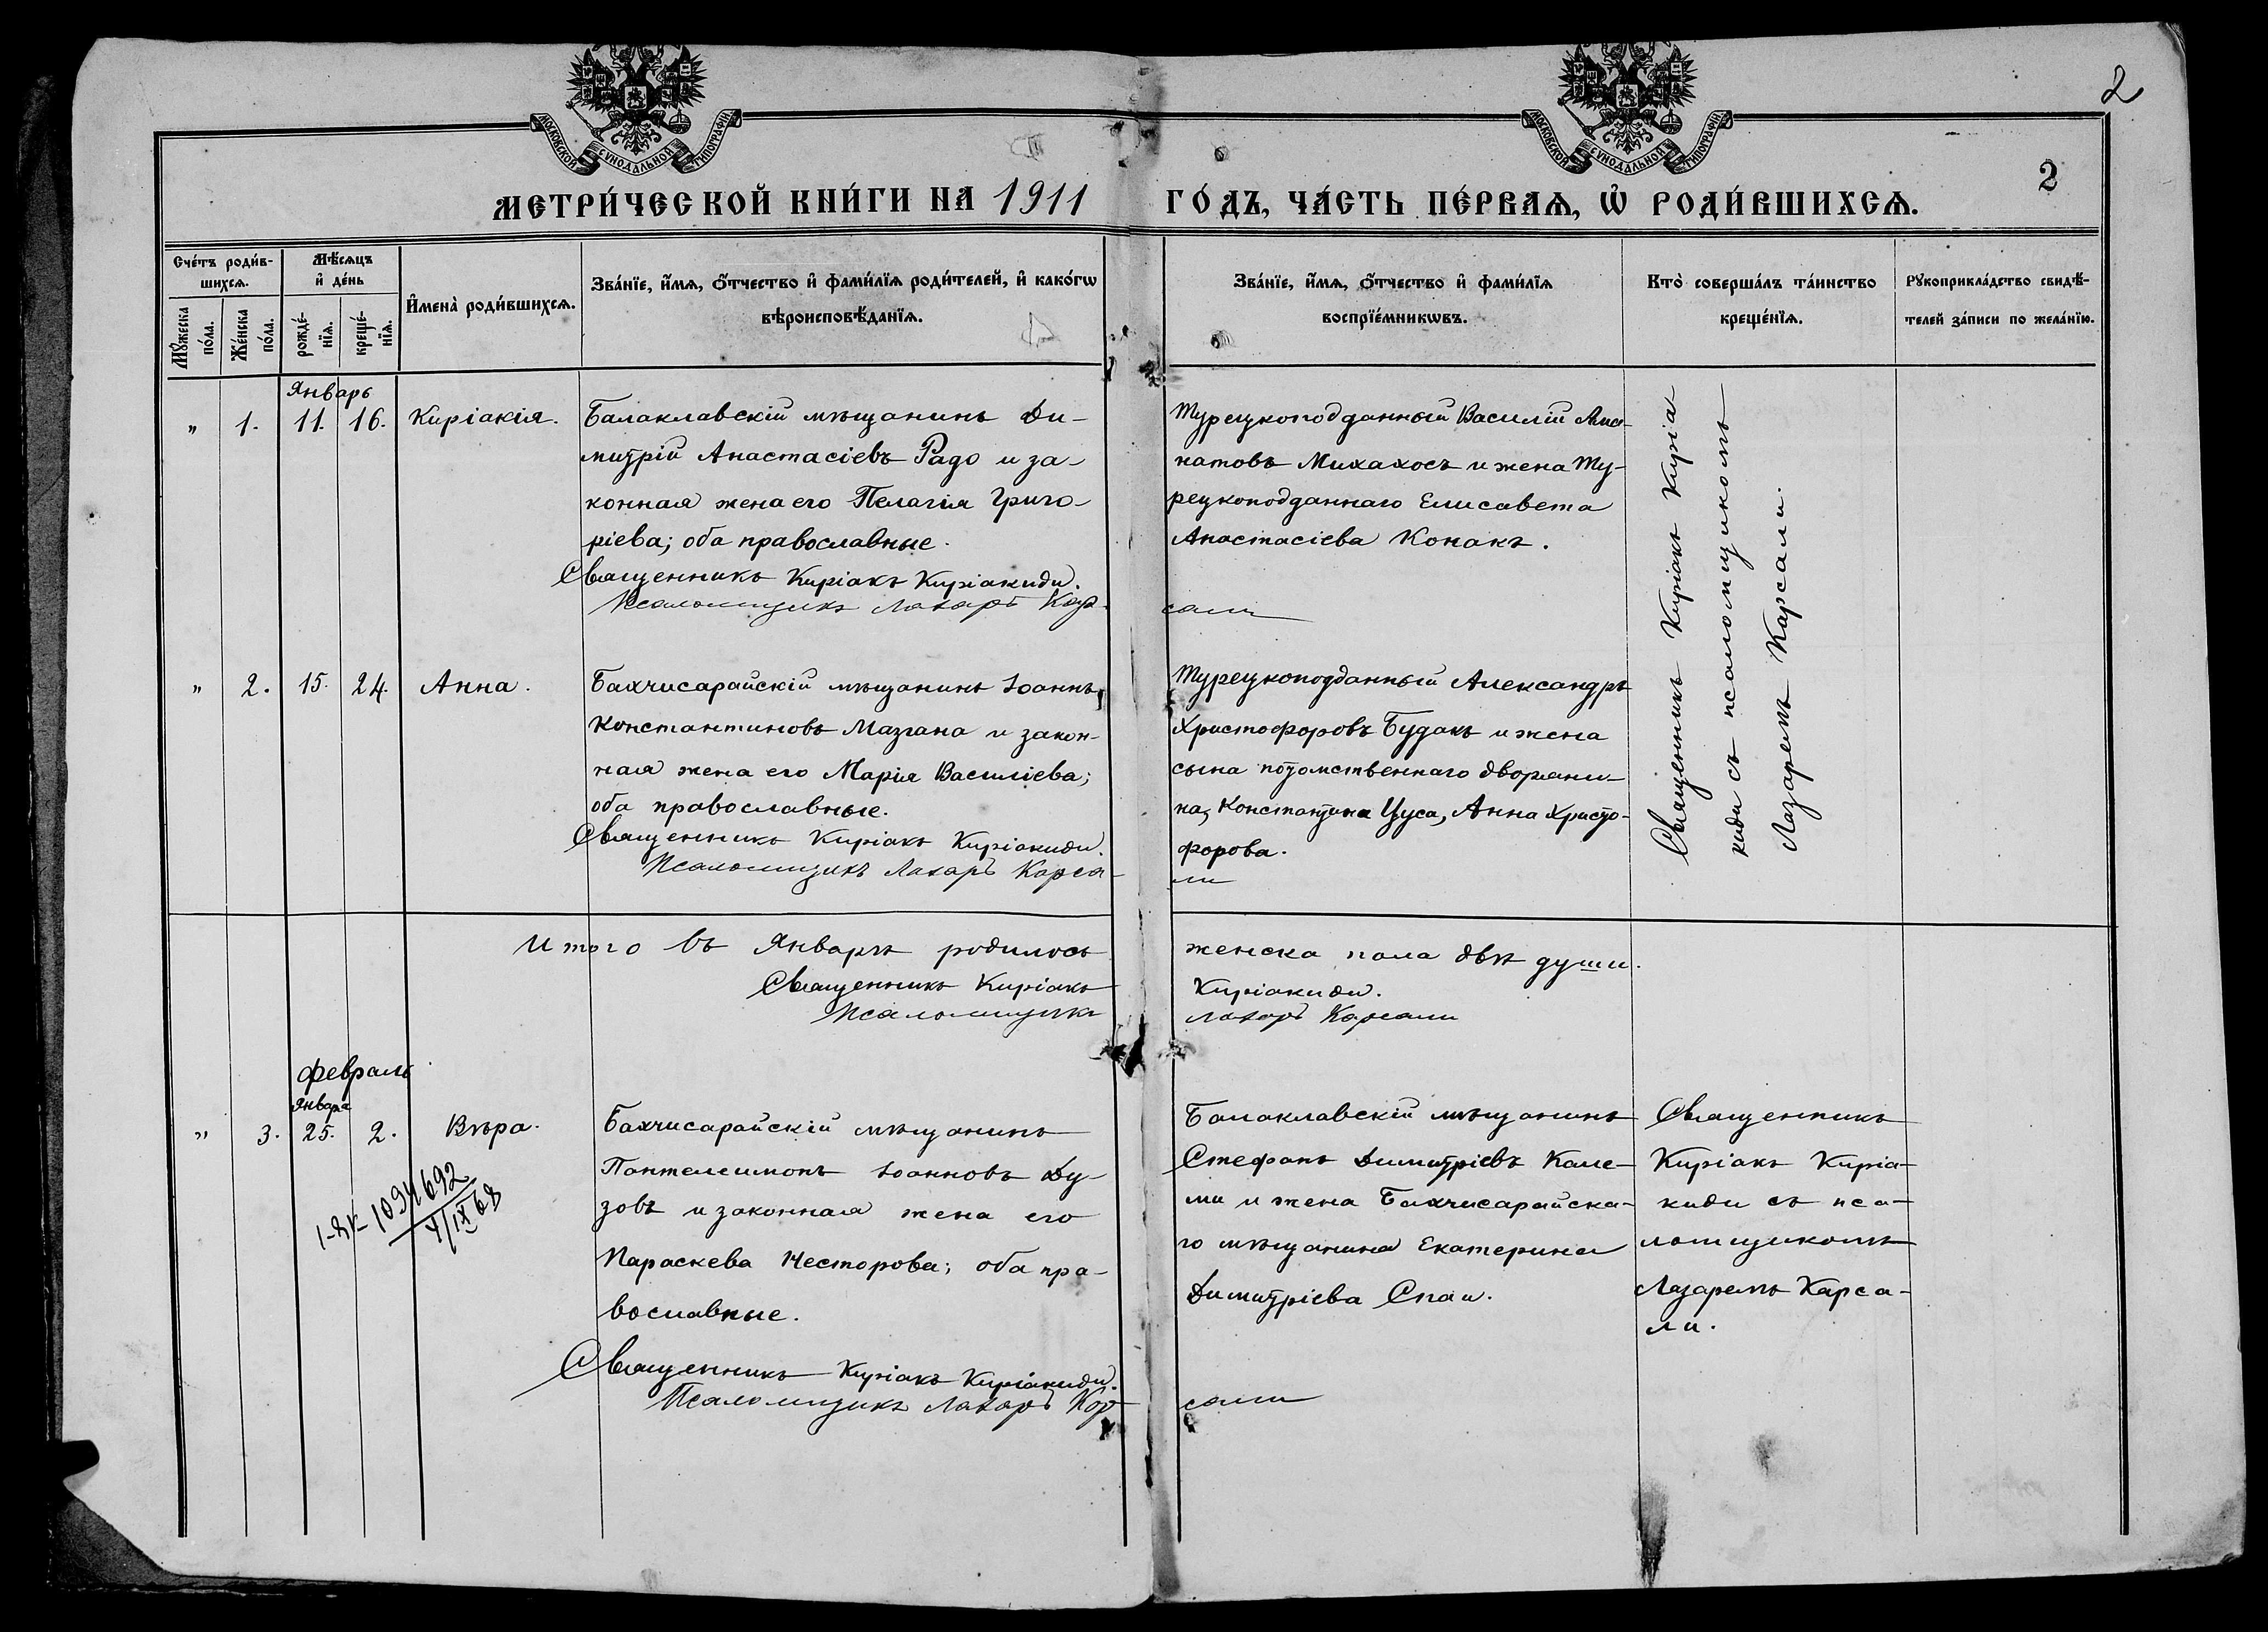 2
МОСКОВСКОЙ СѴНОДАЛЬНОЙ ТИПОГРАФІИ
МОСКОВСКОЙ СѴНОДАЛЬНОЙ ТИПОГРАФІИ
2
МЕТРИ́ЧЕСКОЙ КНИ́ГИ НА 1911 ГО́ДЪ, ЧА́СТЬ ПЕ́РВАѦ, Ѡ҆ РОДИ́ВШИХСѦ.
Сче́тъ роди́в-
шихсѧ.
Мѣ́сѧцъ
и҆ де́нь
И҆мена̀ роди́вшихсѧ.
Зва́нїе, и҆́мѧ, ѻ҆́тчество и҆ фами́лїѧ роди́телей, и҆ како́гѡ
вѣроисповѣ́данїѧ.
Зва́нїе, и҆́мѧ, ѻ҆́тчество и҆ фами́лїѧ
воспрїе́мникѡвъ.
Кто̀ соверша́лъ та́инство
креще́нїѧ.
Рꙋкоприкла́дство свидѣ́-
телей за́писи по жела́нїю.
Мꙋ́жеска
по́ла.
Же́нска
по́ла.
рожде́-
нїѧ.
креще́-
нїѧ.
Январь
" 1. 11. 16. Киріакія.
Балаклавскій мѣщанинъ Ди-
митрій Анастасіевъ Радо и за-
конная жена его Пелагія Григо-
ріева; оба православные.
Священникъ Киріакъ Киріакиди.
Псаломщикъ Лазарь Кар-
сали
Турецкоподданный Василій
натовъ Михахосъ и жена Ту-
рецкоподданнаго Елисавета
Анастасіева Конакъ.
Священникъ Киріакъ Киріа
киди съ псаломщикомъ
Лазаремъ Карсали.
" 2. 15. 24. Анна.
Бахчисарайскій мѣщанинъ Іоаннъ
Константиновъ Мазгана и закон-
ная жена его Марія Василіева;
оба православные.
Священникъ Киріакъ Киріакиди.
Псаломщикъ Лазарь Карса-
ли
Турецкоподданный Александръ
Христофоровъ Будакъ и жена
сына потомственнаго дворяни-
на, Константина Цуса, Анна Христо-
форова.
Итого въ Январѣ родилось женска пола двѣ души.
Священникъ Киріакъ Киріакиди.
Псаломщикъ Лазарь Карсали
Февраль
Января
" 3. 25. 2. Вѣра.
1-ЯК-1094692
V/IX 68
Бахчисарайскій мѣщанинъ
Пантелеимонъ Іоанновъ Ду-
зовъ и законная жена его
Параскева Несторова; оба пра-
вославные.
Священникъ Киріакъ Киріакиди.
Псаломщикъ Лазарь Кар-
сали
Балаклавскій мѣщанинъ
Стефанъ Димитріевъ Кале-
ми и жена Бахчисарайска-
го мѣщанина Екатерина
Димитріева Спаи.
Священникъ
Киріакъ Киріа-
киди съ пса-
ломщикомъ
Лазаремъ Карса-
ли.